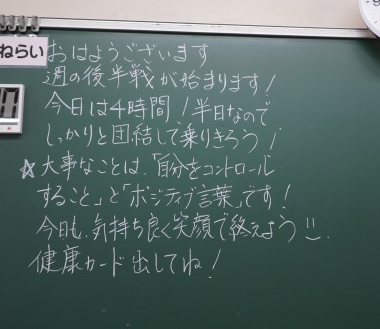 ねらい
おはようございます
週の後半戦が始まります!
今日は4時間!半日なので
しっかりと団結して乗りきろう!
☆大事なことは、「自分をコントロール
すること」と「ポジティブ言葉」です!
今日も、気持ち良く笑顔で終えよう
健康カード出してね!